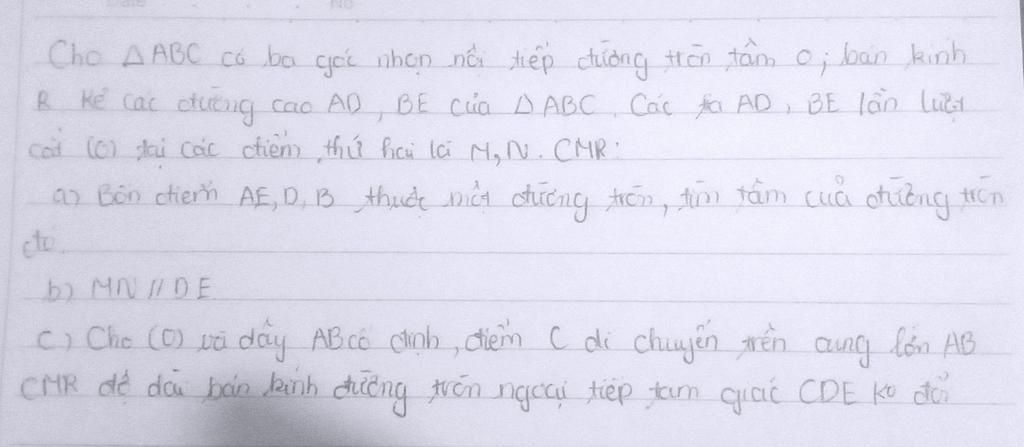 Cho △ABC có ba góc nhọn nội tiếp đường tròn tâm O; bán kính
R Kẻ các đường cao AD, BE của △ABC. Các tia AD, BE lần lượt
cắt (O) tại các điểm thứ hai là M, N. CMR:
a) Bốn điểm A,E, D, B thuộc một đường tròn, tìm tâm của đường tròn
đó.
b) MN // DE
c) Cho (O) và dây AB cố định, điểm C di chuyển trên cung lớn AB
CMR độ dài bán kính đường tròn ngoại tiếp tam giác CDE ko đổi